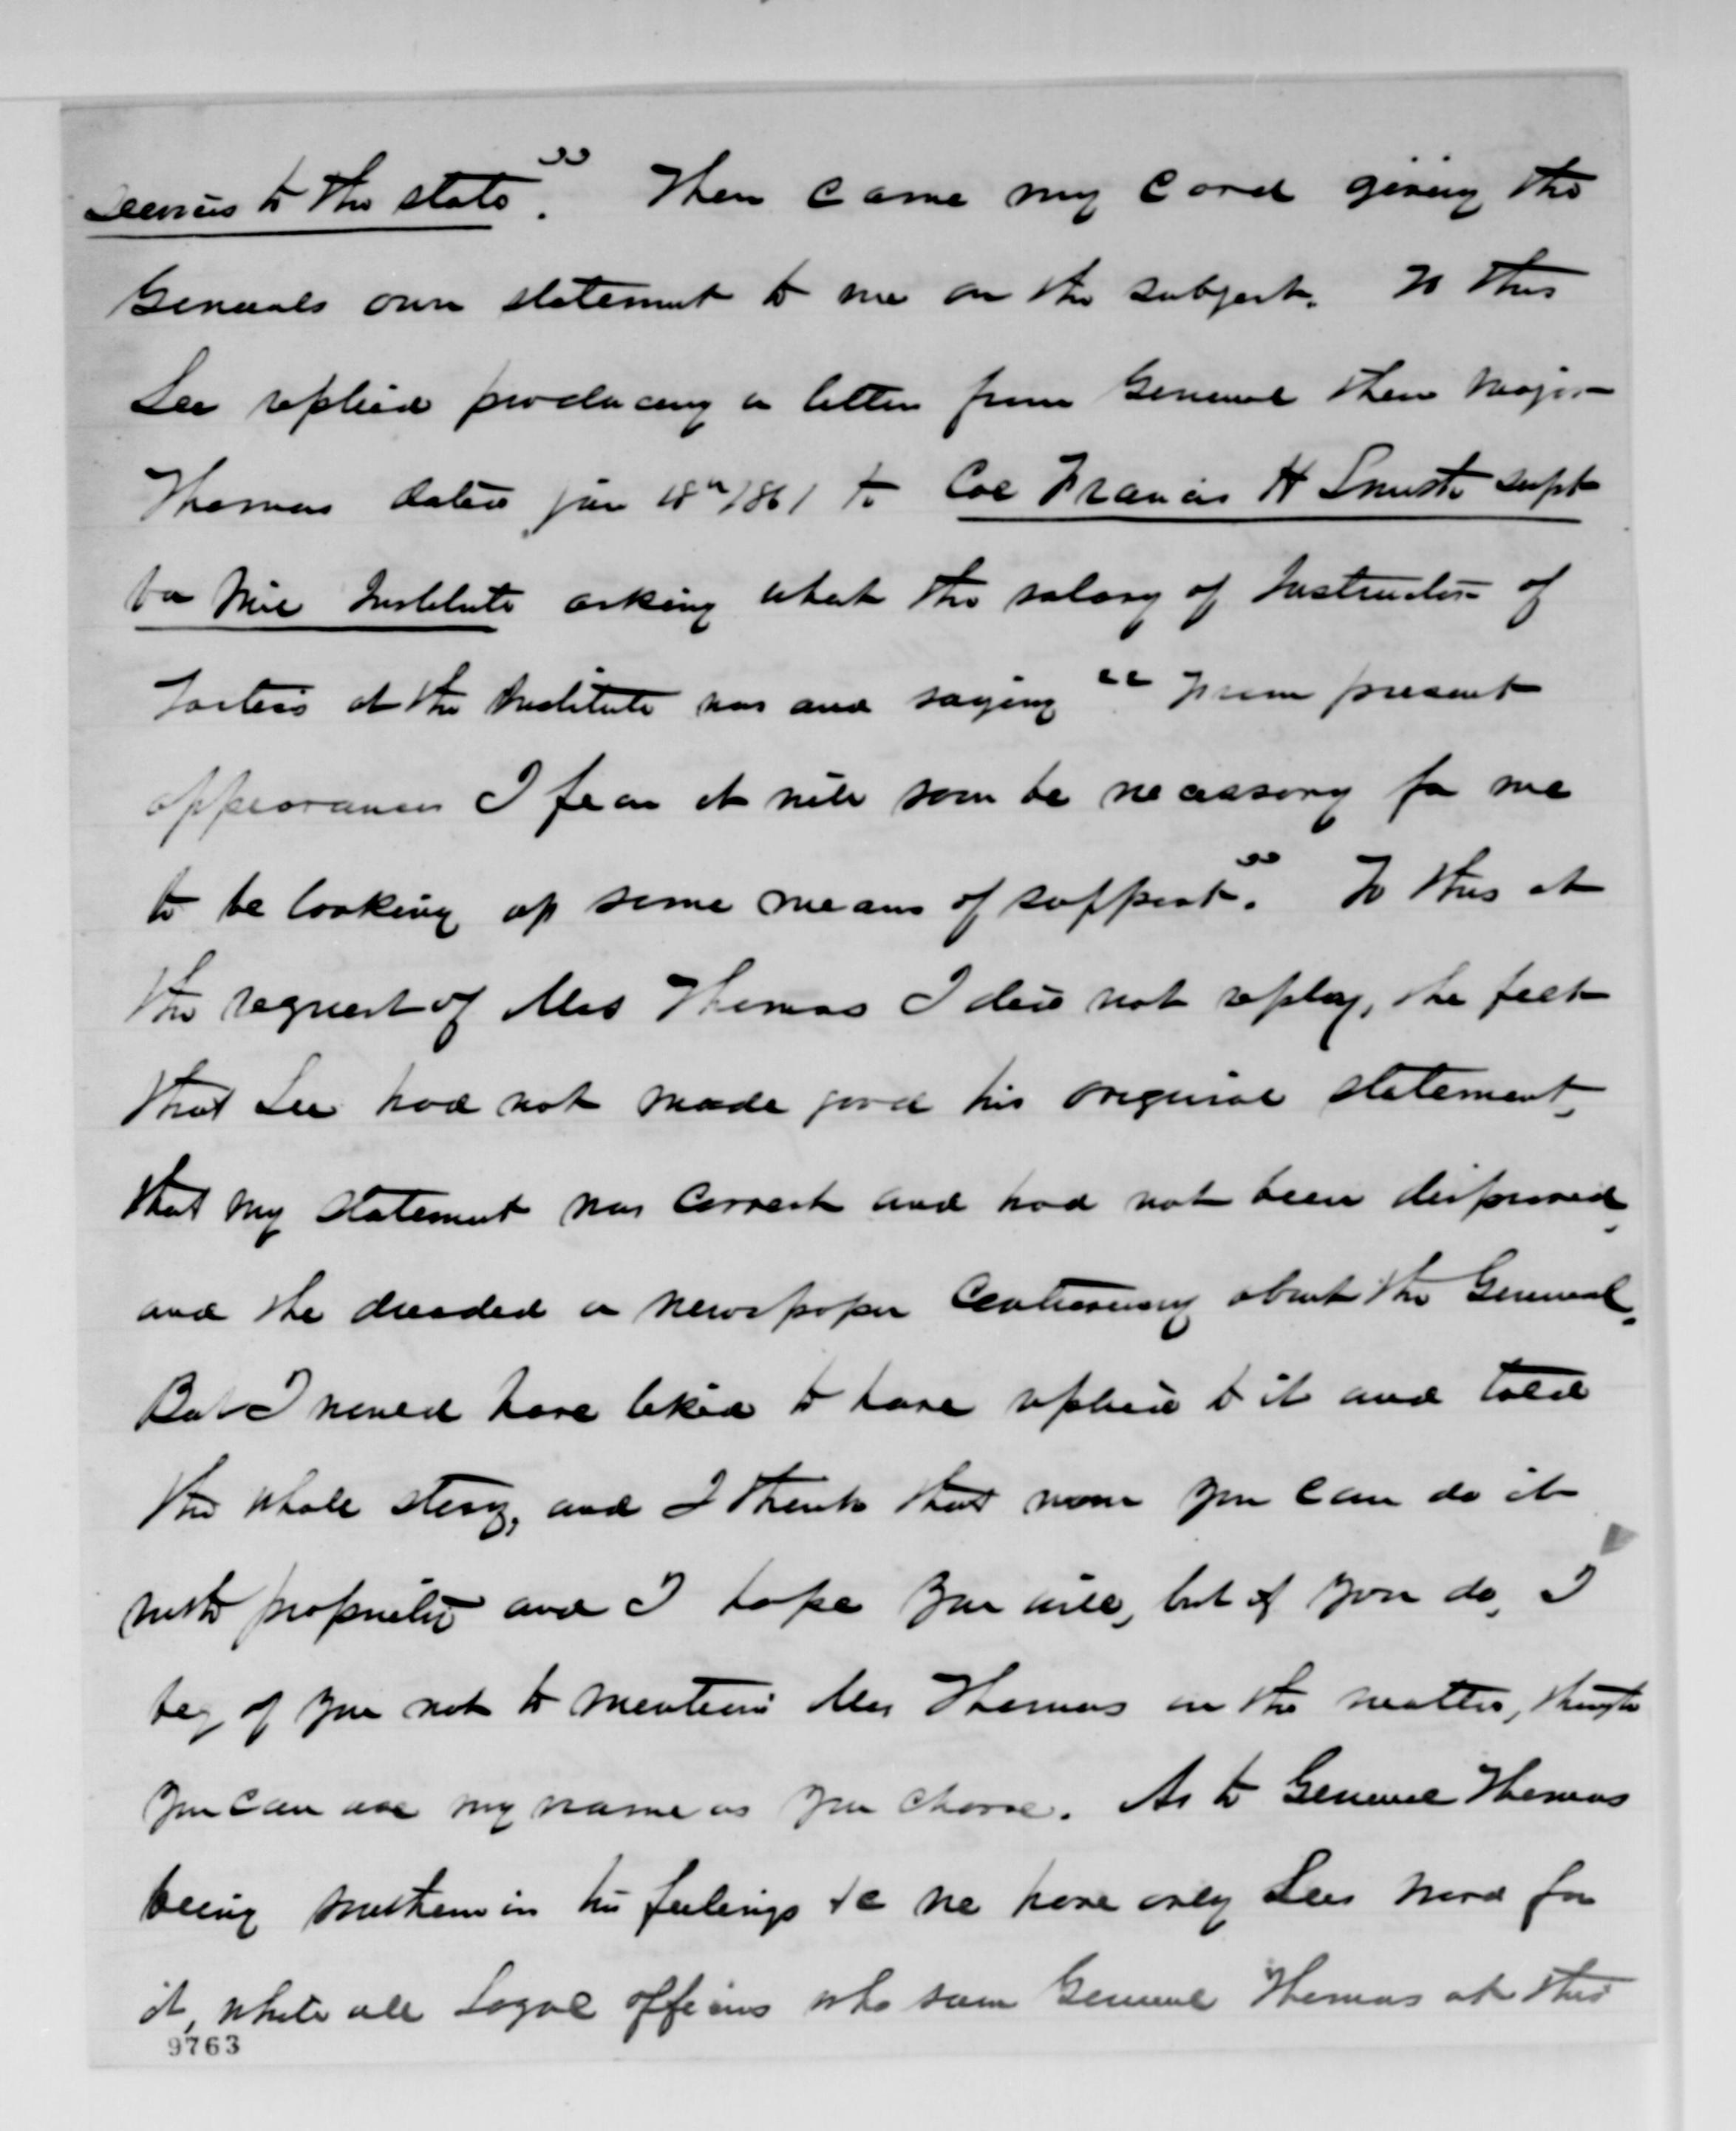 services to the state." Then came my card giving the
Generals own statement to me on the subject. To this
Lee replied producing a letter from General then Major
Thomas dated jan 18th 1861 to Col Francis H Smith supt
Va Mil Institute asking what the salary of Instructor of
Tactics at the Institute was and saying "From present
appearances I fear it will soon be necessary for me
to be looking up some means of support." To this at
the request of Mrs Thomas I did not reply, she felt
that Lee had not made good his original statement,
that my statement was correct and had not been disproved,
and she dreaded a newspaper controversy about the General.
But I would have liked to have replied to it and told
the whole story, and I think that now you can do it
with propriety and I hope you will, but if you do, I
beg of you not to mention Mrs Thomas in the matter, though
you can use my name as you choose. As to General Thomas
being southern in his feelings &c we have only Lees word for
it, while all Loyal officers who saw General Thomas at this
9763